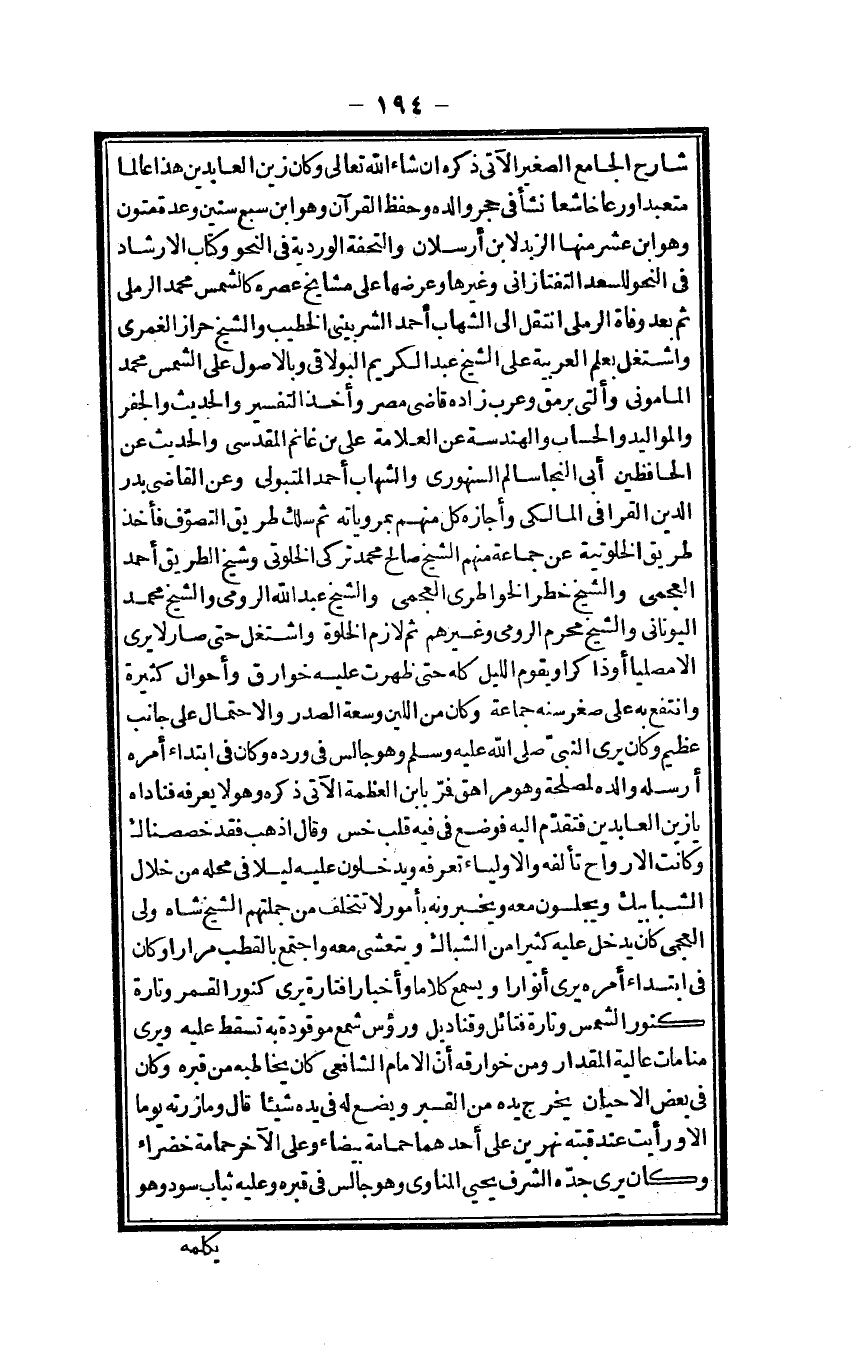 – ١٩٤ –
شارح الجامع الصغير الآتى ذكره ان شاء الله تعالى وكان زين العابدين هذا عالما
متعبدا ورعا خاشعا نشأ فى حجر والده وحفظ القرآن وهو ابن سبع سنين وعدة متون
وهو ابن عشر منها الزبد لابن أرسلان والتحفة الوردية فى النحو وكتاب الارشاد
فى النحو للسعد التفتازانى وغيرها وعرضها على مشايخ عصره كالشمس محمد الرملى
ثم بعد وفاة الرملى انتقل الى الشهاب أحمد الشربينى الخطيب والشيخ حراز الغمرى
واشتغل بعلم العربية على الشيخ عبد الكريم البولاقى وبالاصول على الشمس محمد
المامونى وألتى برمق وعرب زاده قاضى مصر وأخذ التفسير والحديث والجفر
والمواليد والحساب والهندسة عن العلامة على بن غانم المقدسى والحديث عن
الحافظين أبى النجا سالم السنهورى والشهاب أحمد المتبولى وعن القاضى بدر
الدين القرافى المالكى وأجازه كل منهم بمروياته ثم سلك طريق التصوّف فأخذ
طريق الخلوتية عن جماعة منهم الشيخ صالح محمد تركى الخلوتى وشيخ الطريق أحمد
العجمى والشيخ خطر الخواطرى العجمى والشيخ عبد الله الرومى والشيخ محمد
اليونانى والشيخ محرم الرومى وغيرهم ثم لازم الخلوة واشتغل حتى صار لا يرى
الا مصليا أو ذاكرا ويقوم الليل كله حتى ظهرت عليه خوارق وأحوال كثيرة
وانتفع به على صغر سنه جماعة وكان من اللين وسعة الصدر والاحتمال على جانب
عظيم وكان يرى النبىّ صلى الله عليه وسلم وهو جالس فى ورده وكان فى ابتداء أمره
أرسله والده لمصلحة وهو مراهق فمرّ بابن العظمة الآتى ذكره وهو لا يعرفه فناداه
يازين العابدين فتقدّم اليه فوضع فى فيه قلب خس وقال اذهب فقد خصصناك
وكانت الارواح تألفه والاولياء تعرفه ويدخلون عليه ليلا فى محله من خلال
الشبابيك ويجلسون معه ويخبرونه بأمور لا تتخلف من جملتهم الشيخ شاه ولى
العجمى كان يدخل عليه كثيرا من الشباك ويتعشى معه واجتمع بالقطب مرارا وكان
فى ابتداء أمره يرى أنوارا ويسمع كلاما وأخبارا فتارة يرى كنور القمر وتارة
كنور الشمس وتارة فتائل وقناديل ورؤس شمع موقودة به تسقط عليه ويرى
منامات عالية المقدار ومن خوارقه أن الامام الشافعى كان يخاطبه من قبره وكان
فى بعض الاحيان يخرج يده من القبر ويضع له فى يده شيئا قال وما زرته يوما
الا ورأيت عند قبته نهرين على أحدهما حمامة بيضاء وعلى الآخر حمامة خضراء
وكان يرى جدّه الشرف يحيى المناوى وهو جالس فى قبره وعليه ثياب سود وهو
يكلمه